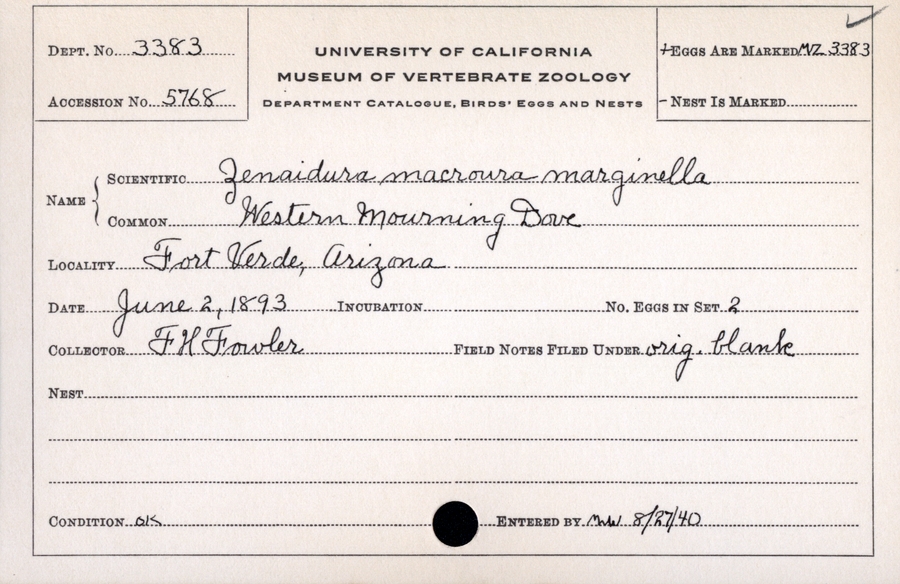 DEPT. NO. 3383
ACCESSION NO. 5768
UNIVERSITY OF CALIFORNIA
MUSEUM OF VERTEBRATE ZOOLOGY
DEPARTMENT CATALOGUE, BIRDS' EGGS AND NESTS
+EGGS ARE MARKED MVZ 3383
- NEST IS MARKED
NAME
SCIENTIFIC Zenaidura macroura marginella
COMMON Western Mourning Dove
LOCALITY Fort Verde, Arizona
DATE June 2, 1893 INCUBATION NO. EGGS IN SET 2
COLLECTOR F H Fowler FIELD NOTES FILED UNDER orig. blank
NEST
CONDITION OK ENTERED BY 8/27/40